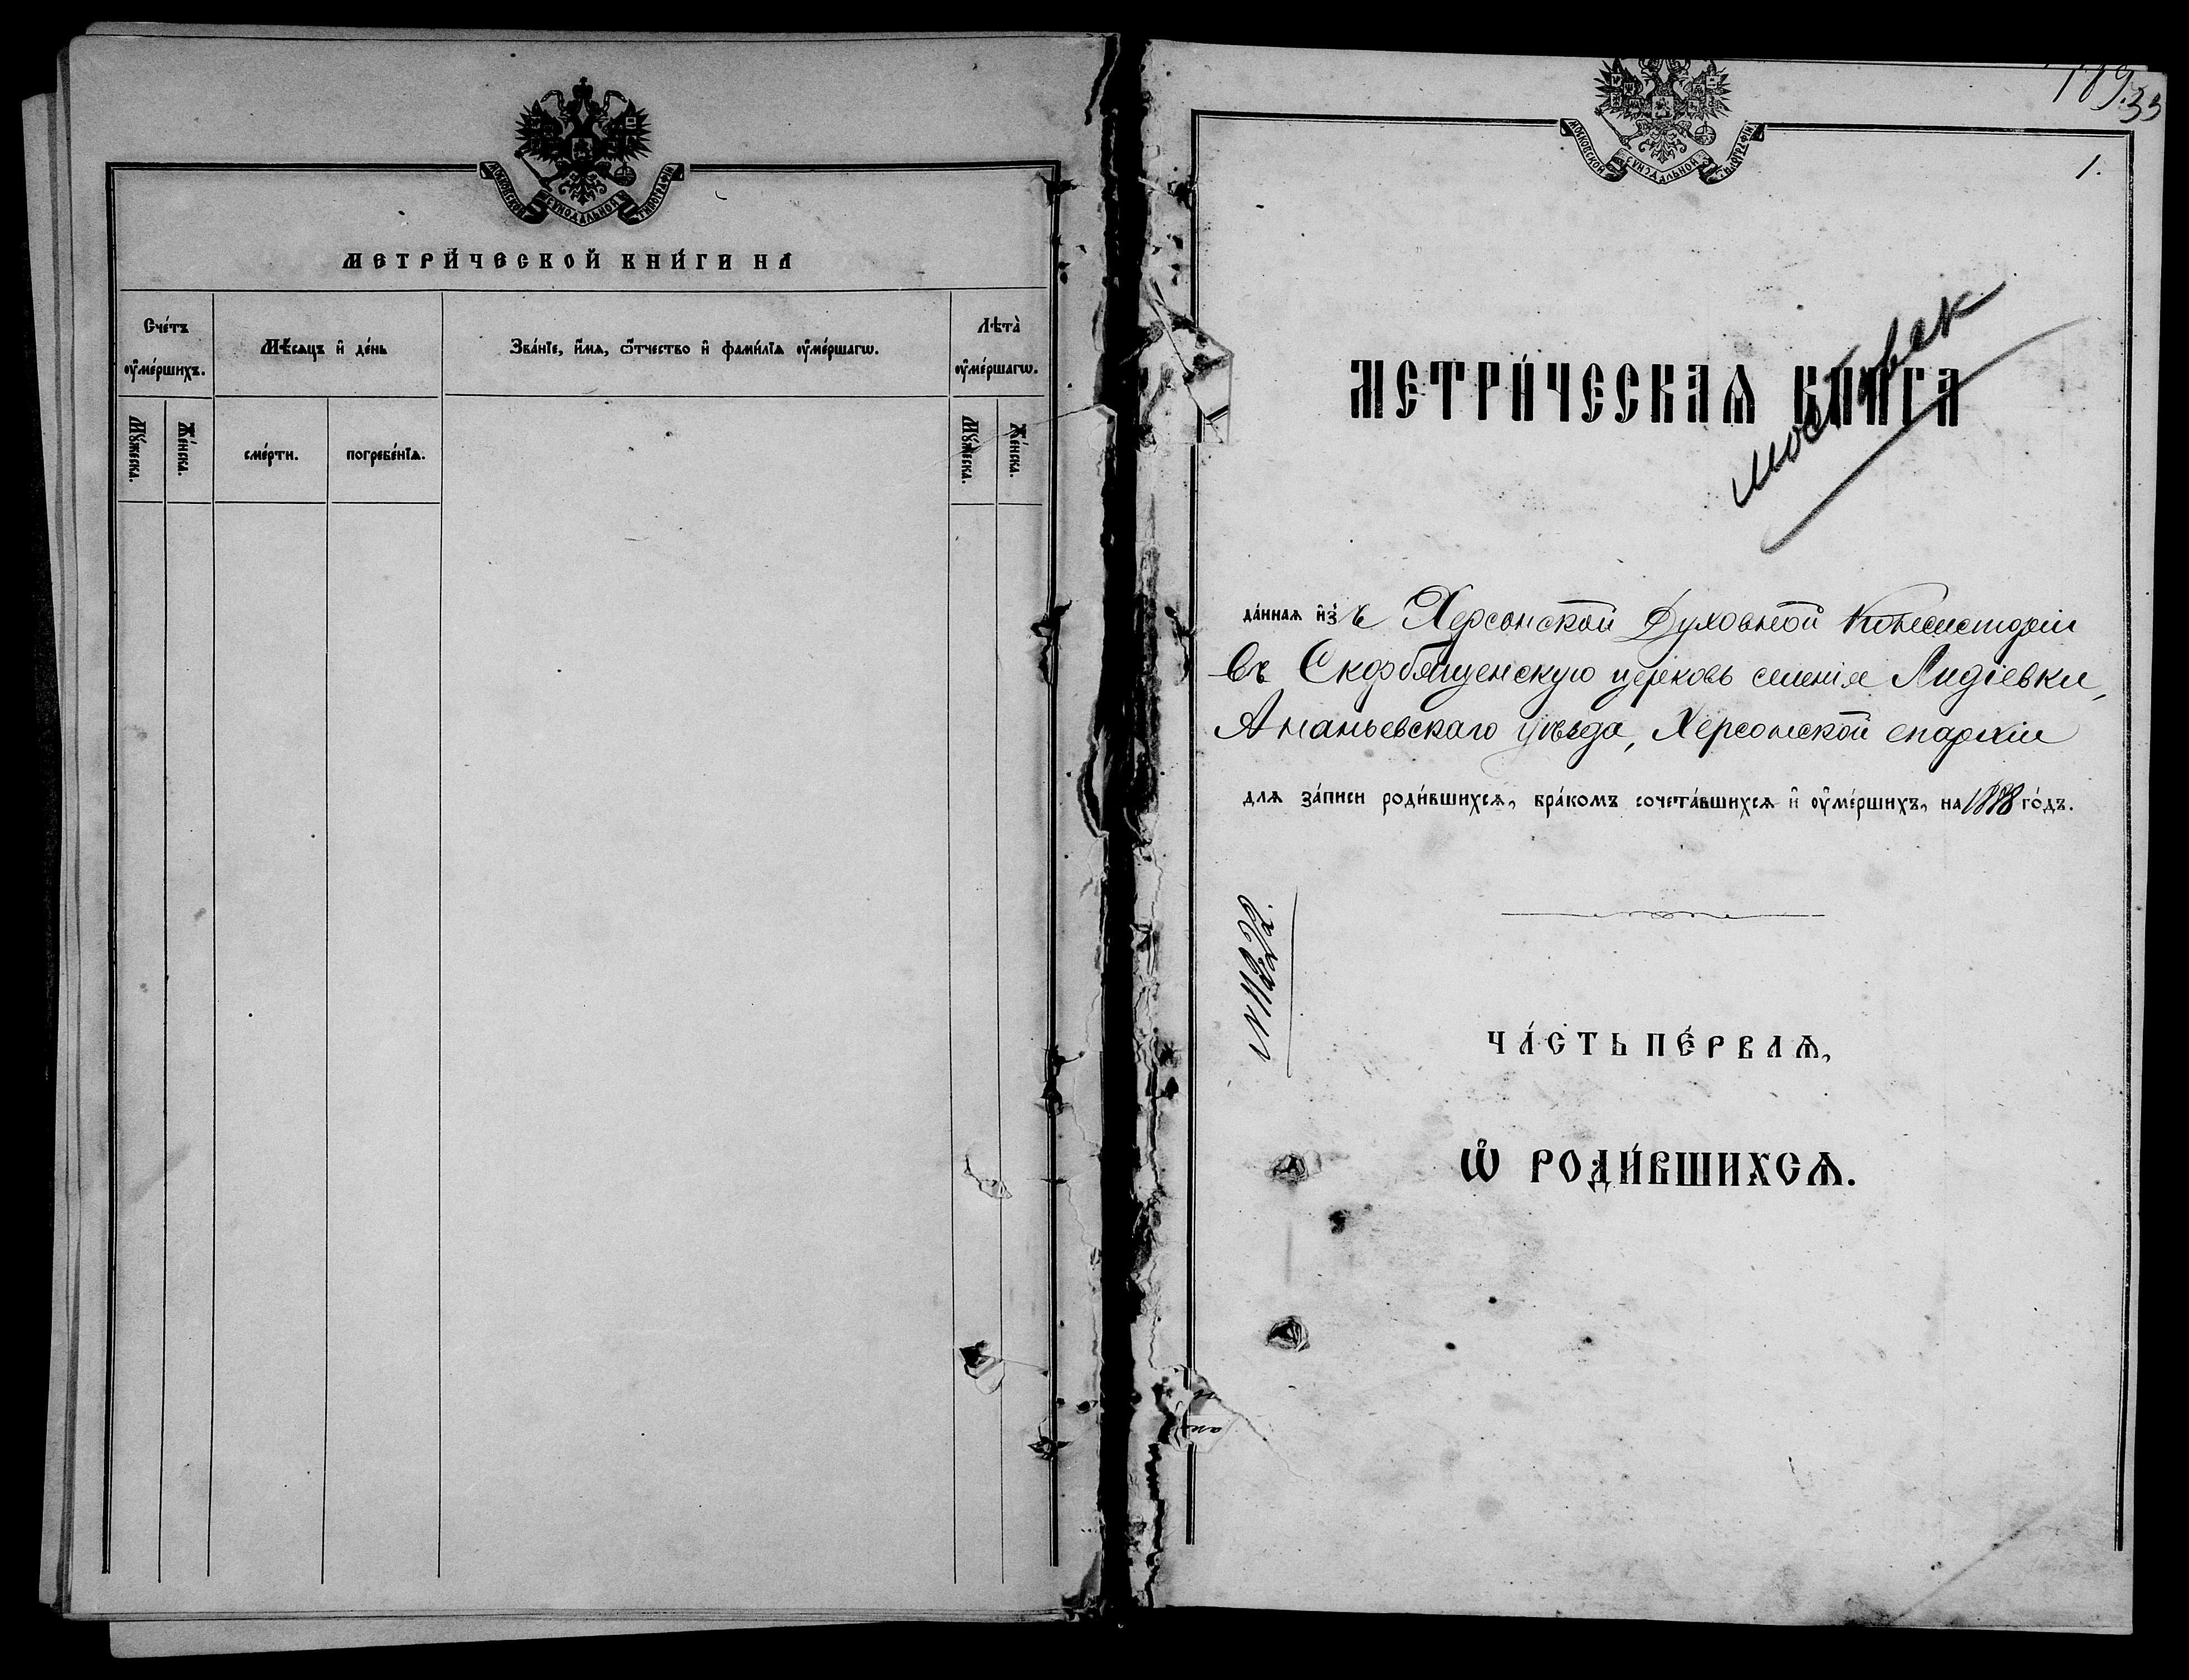 МОСКОВСКОЙ СѴНОДАЛЬНОЙ ТИПОГРАФІИ
МЕТРИ́ЧЕСКОЙ КНИ́ГИ НА
Сче́тъ ᲂу҆ме́ршихъ.
Мѣ́сяцъ и҆ де́нь
Зва́нїе, и҆́мѧ, ѻ҆́тчество и҆ фами́лїѧ ᲂу҆ме́ршагѡ.
Лѣта̀ ᲂу҆ме́ршагѡ.
Мꙋ́жеска.
Же́нска.
сме́рти.
погребе́нїѧ.
Мꙋ́жеска.
Же́нска.
33
МОСКОВСКОЙ СѴНОДАЛЬНОЙ ТИПОГРАФІИ
1.
МЕТРИ́ЧЕСКАѦ КНИ́ГА
да́ннаѧ и҆зъ Херсонской Духовной Консисторіи
въ Скорбященскую церковь селенія Лидіевки,
Ананьевскаго уѣзда, Херсонской епархіи
для за́писи роди́вшихсѧ, бра́комъ сочета́вшихсѧ и҆ ᲂу҆ме́ршихъ, на 1878 го́дъ.
ЧА́СТЬ ПЕ́РВАѦ,
Ѡ҆ РОДИ́ВШИХСѦ.